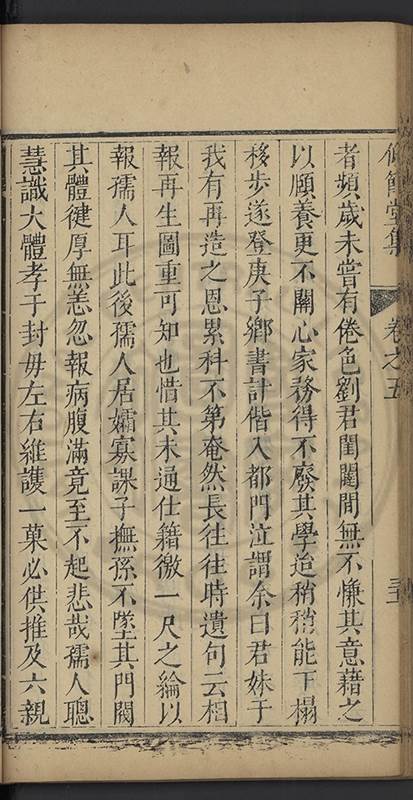 脩餘堂集 卷之五
者頻歲未嘗有倦色劉君閨闥間無不慊其意藉之
以頤養更不關心家務得不廢其學迨稍稍能下榻
移步遂登庚子鄉書計偕入都門泣謂余曰君妹于
我有再造之恩累科不第奄然長往往時遺句云相
報再生圖重可知也惜其未通仕籍徼一尺之綸以
報孺人耳此後孺人居孀寡課子撫孫不墜其門閥
其體健厚無恙忽報病腹滿竟至不起悲哉孺人聰
慧識大體孝于封毋左右維護一菓必供推及六親